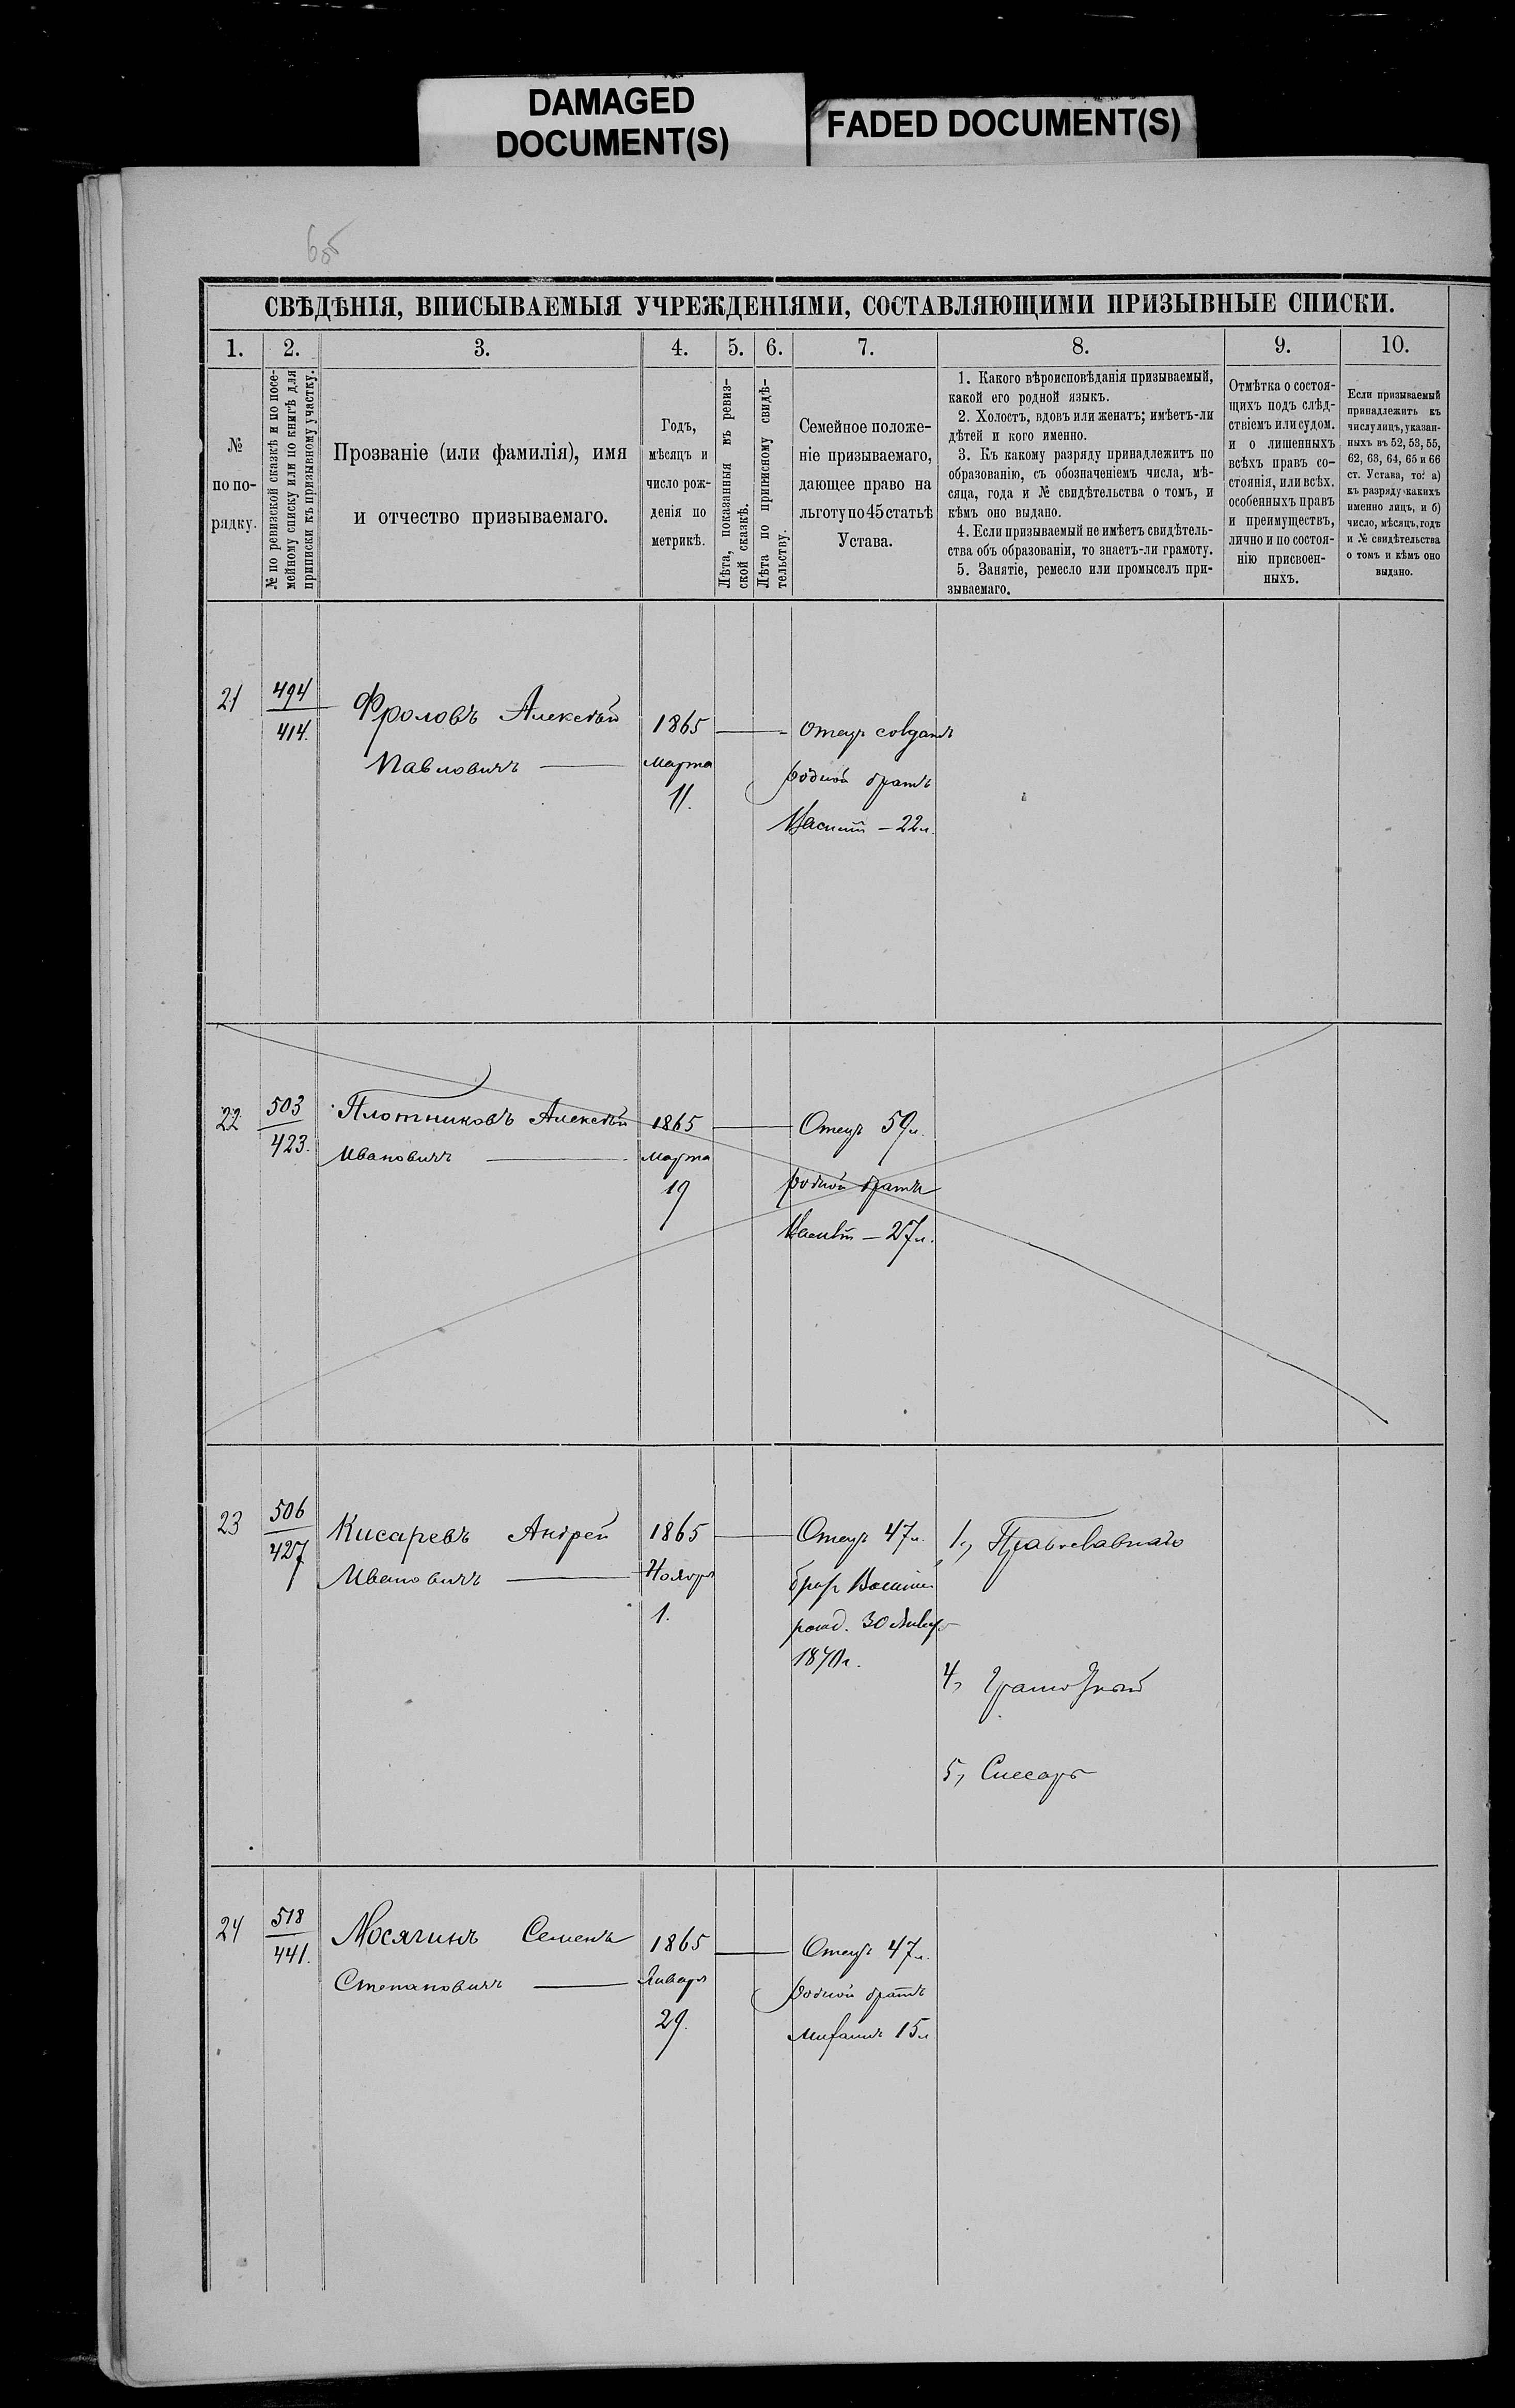 DAMAGED
DOCUMENT(S)
FADED DOCUMENT(S)
СВѢДѢНІЯ, ВПИСЫВАЕМЫЯ УЧРЕЖДЕНІЯМИ, СОСТАВЛЯЮЩИМИ ПРИЗЫВНЫЕ СПИСКИ.
1.
2.
3.
4.
5.
6.
7.
8.
9.
10.
№
по по-
рядку.
№ по ревизской сказкѣ и по посе-
мейному списку или по книгѣ для
приписки къ призывному участку.
Прозваніе (или фамилія), имя
и отчество призываемаго.
Годъ,
мѣсяцъ и
число рож-
денія по
метрикѣ.
Лѣта, показанныя въ ревиз-
ской сказкѣ.
Лѣта по приписному свидѣ-
тельству.
Семейное положе-
ніе призываемаго,
дающее право на
льготу по 45 статьѣ
Устава.
1. Какого вѣроисповѣданія призываемый,
какой его родной языкъ.
2. Холостъ, вдовъ или женатъ; имѣетъ-ли
дѣтей и кого именно.
3. Къ какому разряду принадлежитъ по
образованію, съ обозначеніемъ числа, мѣ-
сяца, года и № свидѣтельства о томъ, и
кѣмъ оно выдано.
4. Если призываемый не имѣетъ свидѣтель-
ства объ образованіи, то знаетъ-ли грамоту.
5. Занятіе, ремесло или промыселъ при-
зываемаго.
Отмѣтка о состоя-
щихъ подъ слѣд-
ствіемъ или судом.
и о лишенныхъ
всѣхъ правъ со-
стоянія, или всѣх.
особенныхъ правъ
и преимуществъ,
лично и по состоя-
нію присвоен-
ныхъ.
Если призываемый
принадлежитъ къ
числу лицъ, указан-
ныхъ въ 52, 53, 55,
62, 63, 64, 65 и 66
ст. Устава, то: а)
къ разряду какихъ
именно лицъ, и б)
число, мѣсяцъ, годъ
и № свидѣтельства
о томъ и кѣмъ оно
выдано.
21
494
414.
Фроловъ Алексѣй
Павловичъ
1865
Марта
11.
Отецъ солдатъ
родной братъ
22 л.
22
503
423.
Плотниковъ Алексѣй
Ивановичъ
1865
Марта
19
Отецъ 59 л.
родной братъ
27 л.
23
506
427
Кисаревъ Андрей
Ивановичъ
1865
Ноября
1.
Отецъ 47 л.
братъ Василій
рожд. 30 Января
1870 г.
1, Православнаго
4, Грамотный
5, Слесарь
24
518
441.
Мосягинъ Семенъ
Степановичъ
1865
Января
29.
Отецъ 47 л.
родной братъ
Михаилъ 15 л